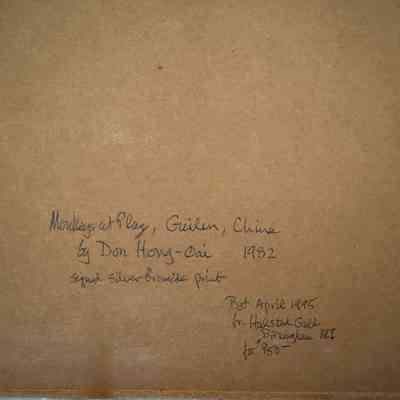 Monkeys at Play, Guilin, China
by Don Hong-Oai 1982
signed silver bromide print
Bot April 1995
fr. Halsted Gall
Birmingham MI
for 950-